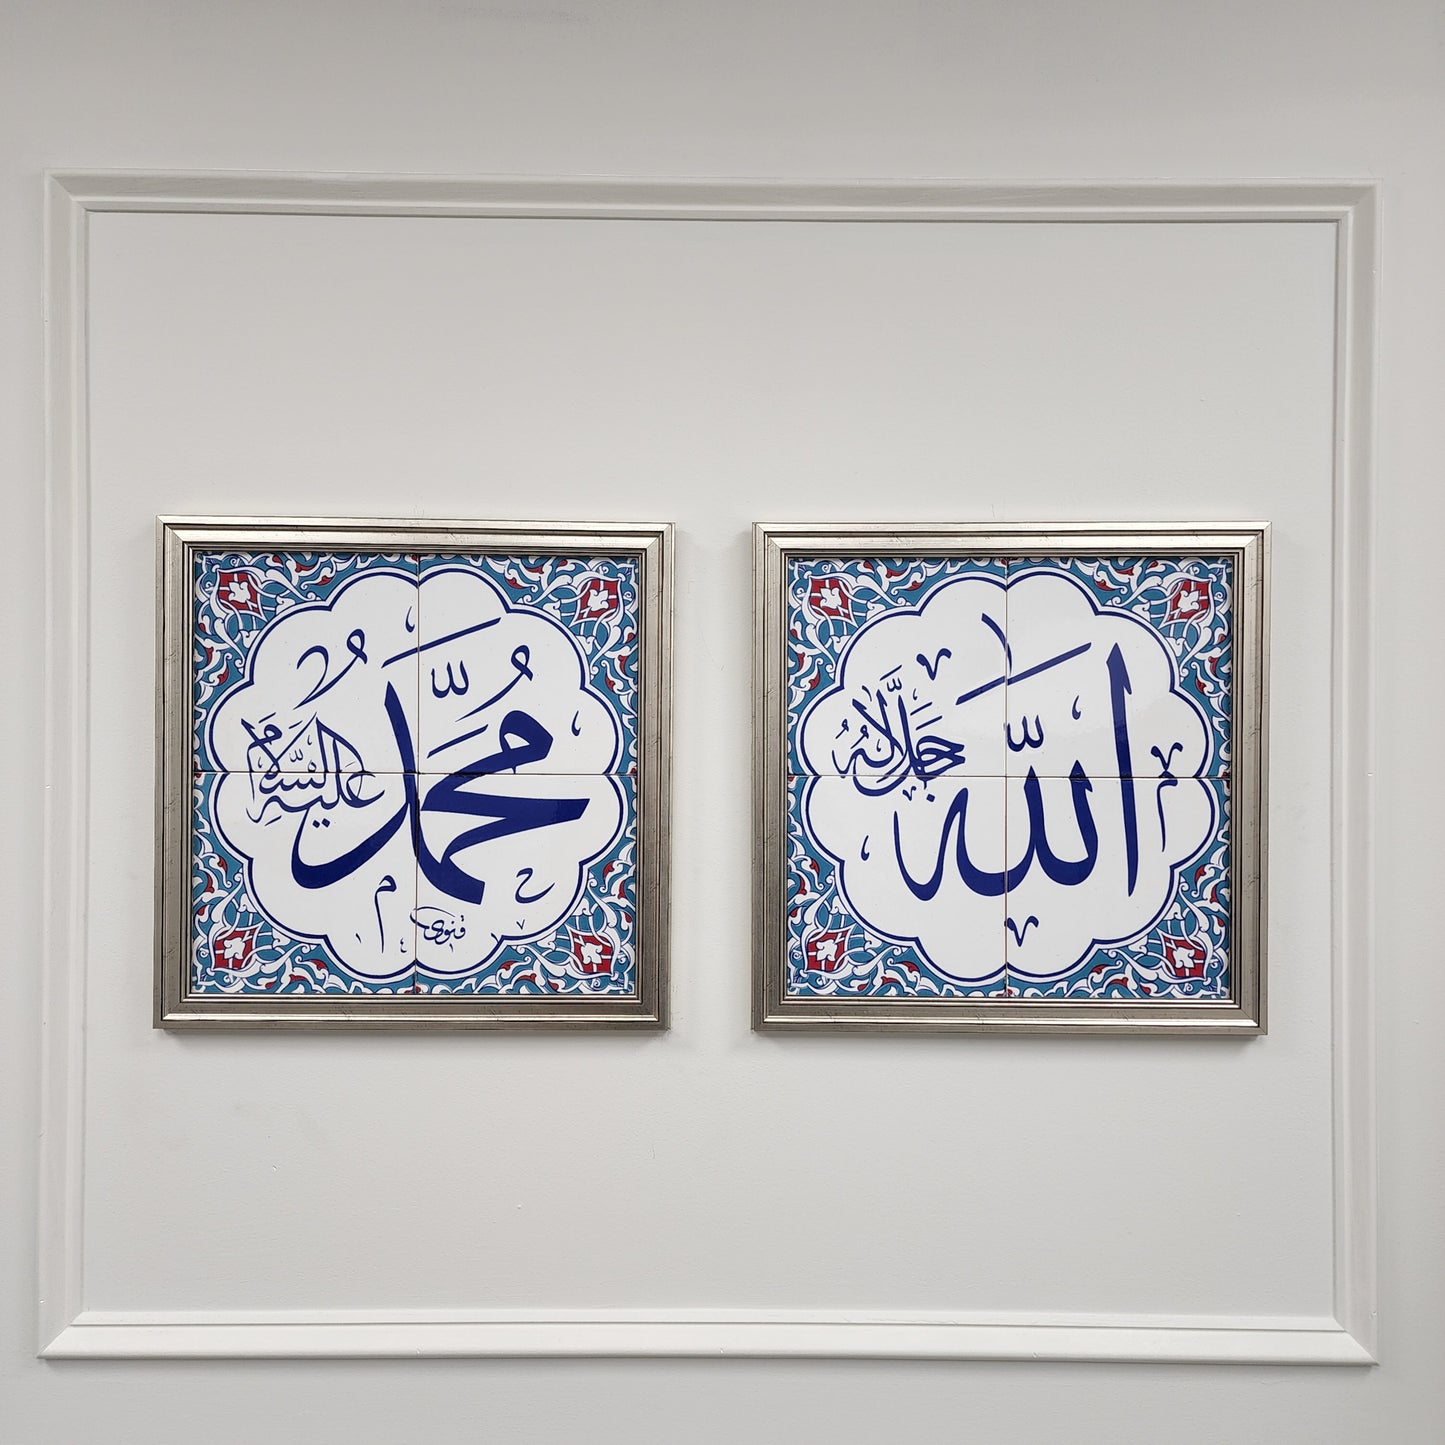 الله
جل جلاله
محمد
عليه السلام
قنوى